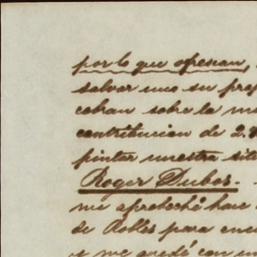 por lo que ofrecian,
salvar uno su pro
cobran sobre la m
contribucion de 2.
pintar nuestra sit
Roger Dubos. -
me aproloché hace
de Robles para enc
y me quedé con un